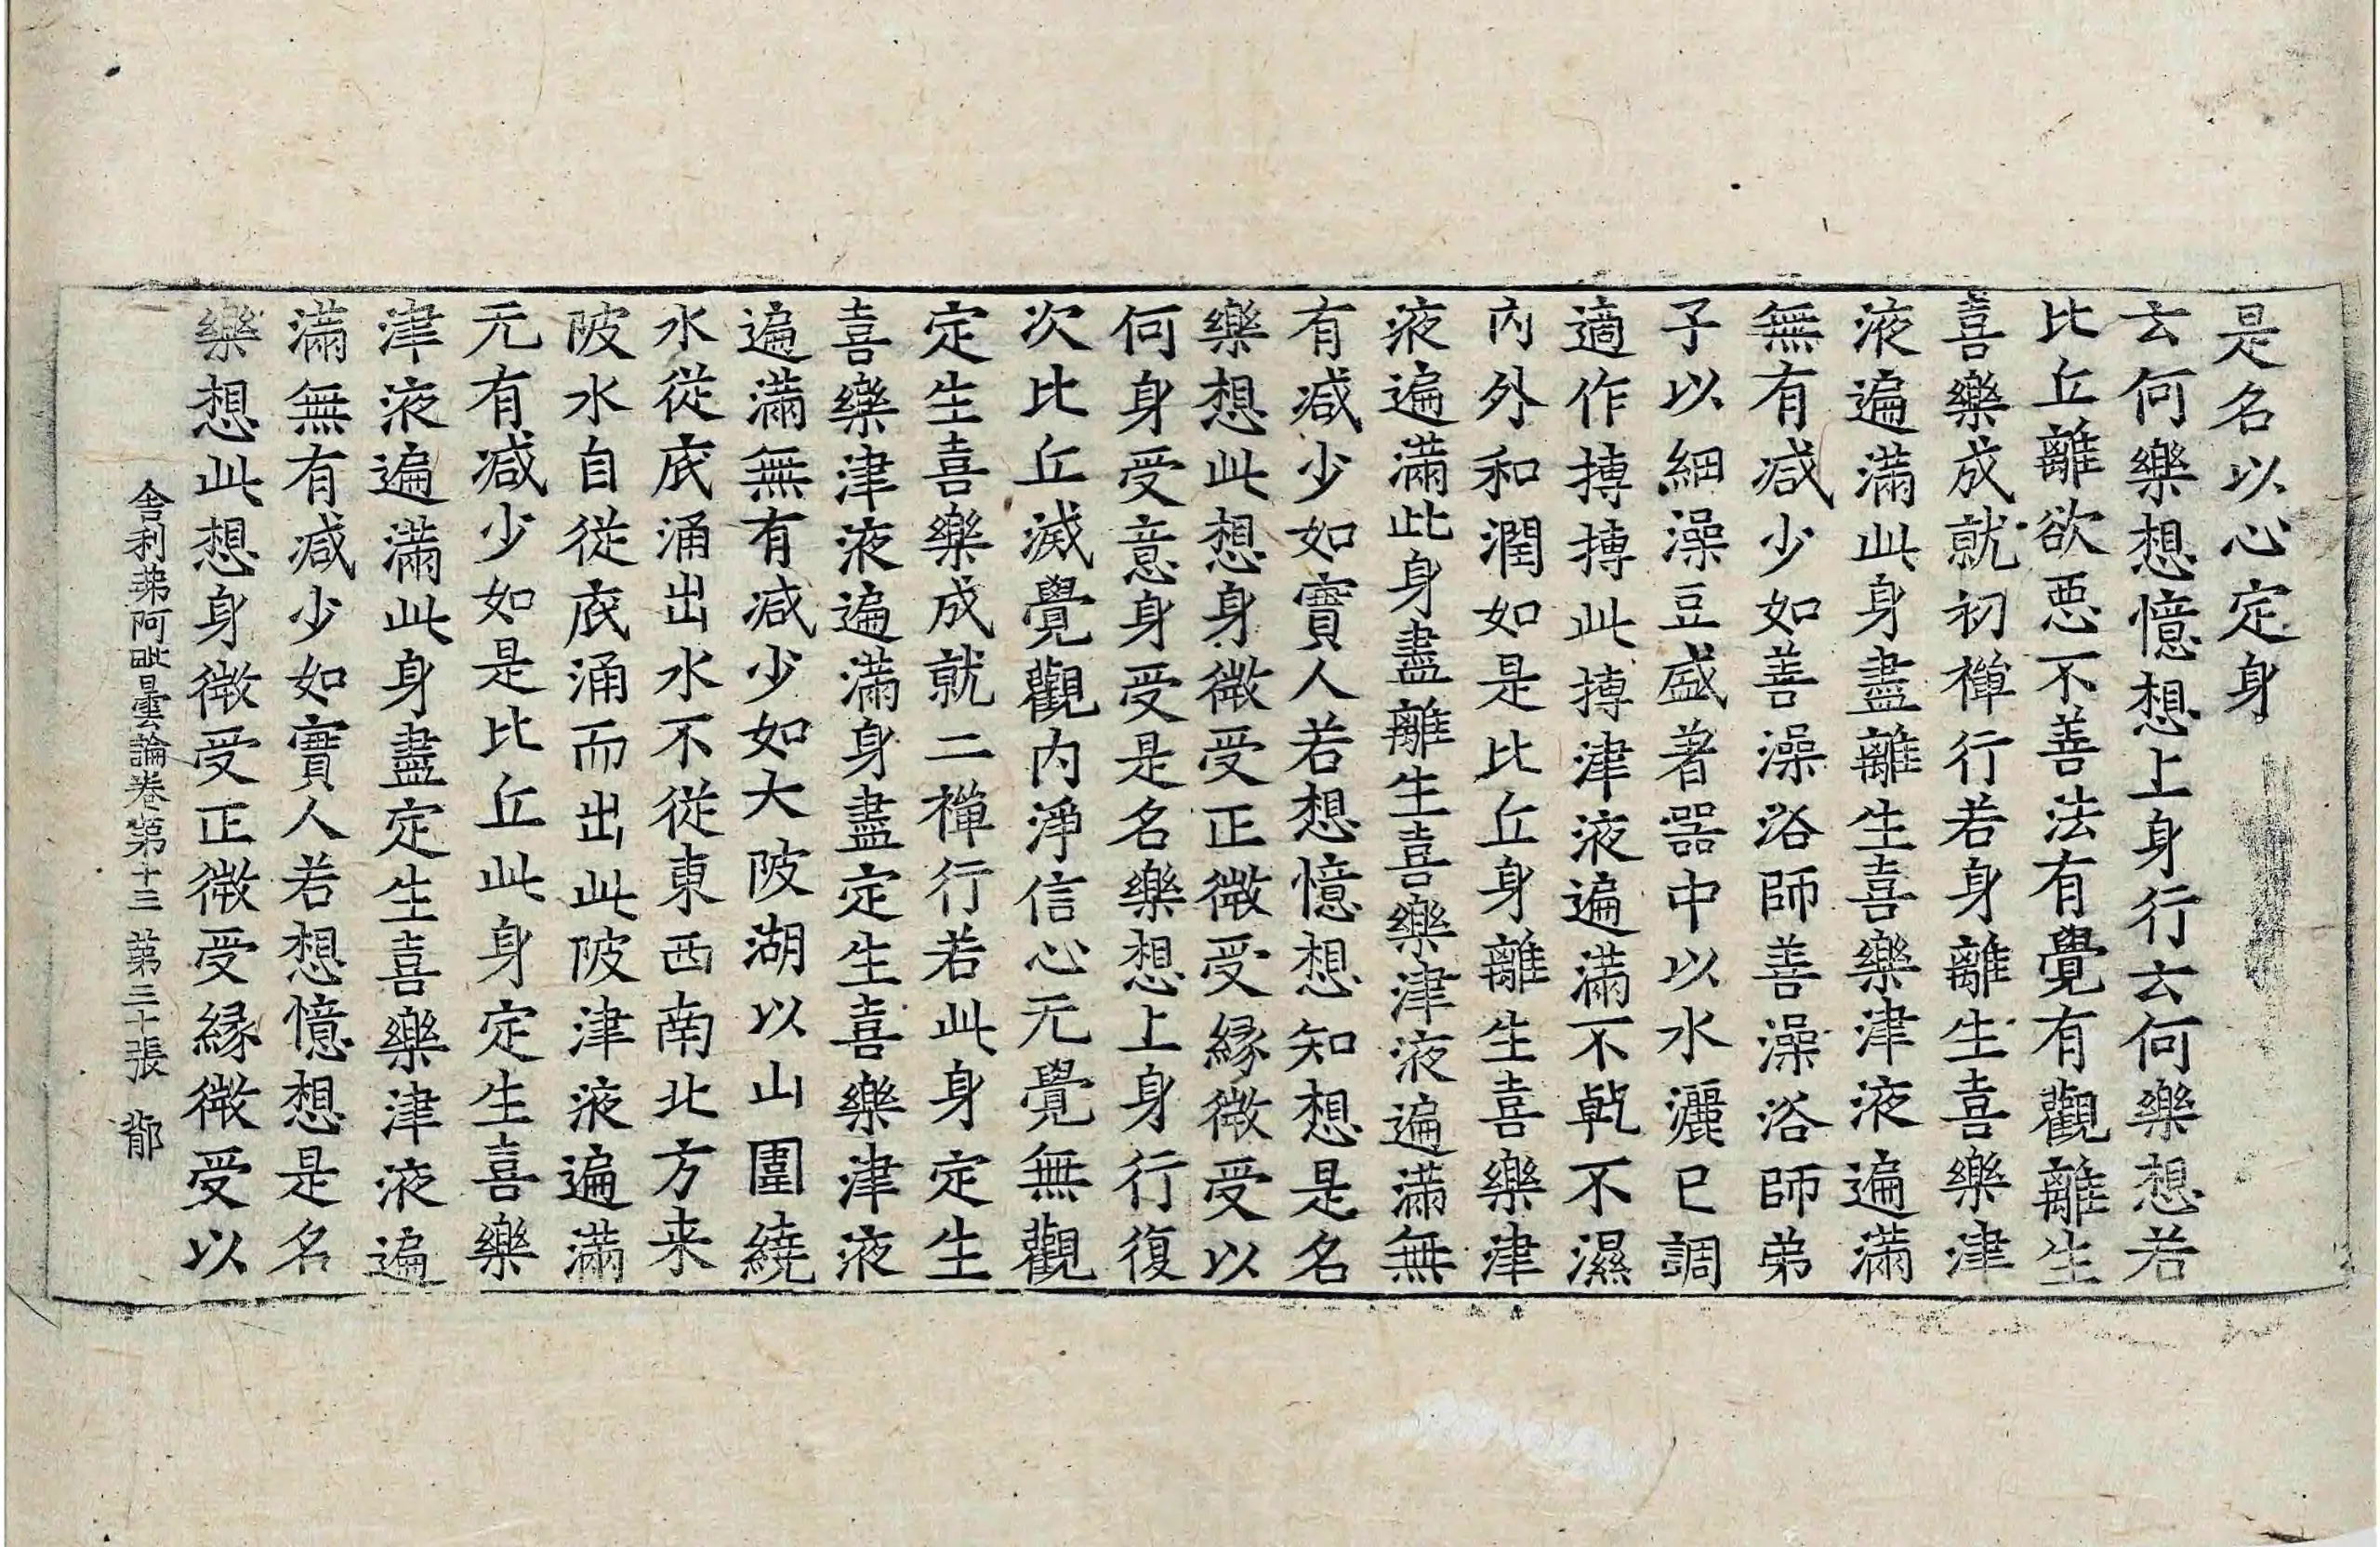 是名以心定身
云何樂想憶想上身行云何樂想若
比丘離欲惡不善法有覺有觀離生
喜樂成就初禪行若身離生喜樂津
液遍滿此身盡離生喜樂津液遍滿
無有减少如善澡浴師善澡浴師弟
子以細澡豆盛著器中以水灑已調
適作摶摶此摶津液遍滿不乹不濕
內外和潤如是比丘身離生喜樂津
液遍滿此身盡離生喜樂津液遍滿無
有减少如實人若想憶想知想是名
樂想此想身微受正微受緣微受以
何身受意身受是名樂想上身行復
次比丘滅覺觀內淨信心无覺無觀
定生喜樂成就二禪行若此身定生
喜樂津液遍滿身盡定生喜樂津液
遍滿無有减少如大陂湖以山圍繞
水從底涌出水不從東西南北方来
陂水自從底涌而出此陂津液遍滿
无有减少如是比丘此身定生喜樂
津液遍滿此身盡定生喜樂津液遍
滿無有减少如實人若想憶想是名
樂想此想身微受正微受緣微受以
舍利弗阿毗曇論卷第十三 第三十張 郁